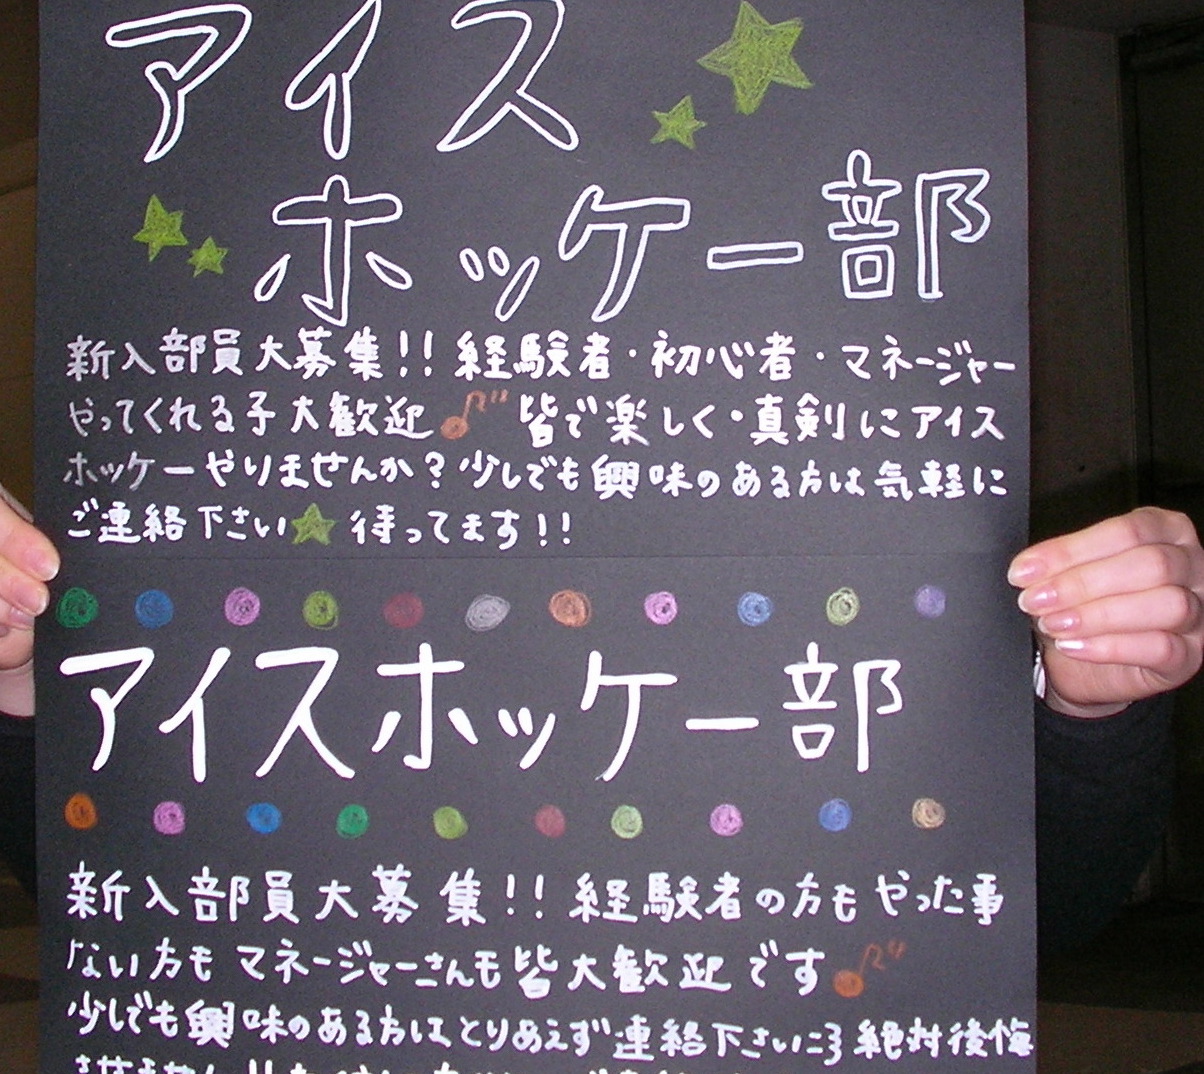 アイス
ホッケー部
新入部員大募集!! 経験者・初心者・マネージャー
やってくれる子大歓迎♪" 皆で楽しく・真剣にアイス
ホッケーやりませんか?少しでも興味のある方は気軽に
ご連絡下さい★ 待ってます!!
アイスホッケー部
新入部員大募集!! 経験者の方もやった事
ない方もマネージャーさんも皆大歓迎です♪"
少しでも興味のある方はとりあえず連絡下さい 絶対後悔